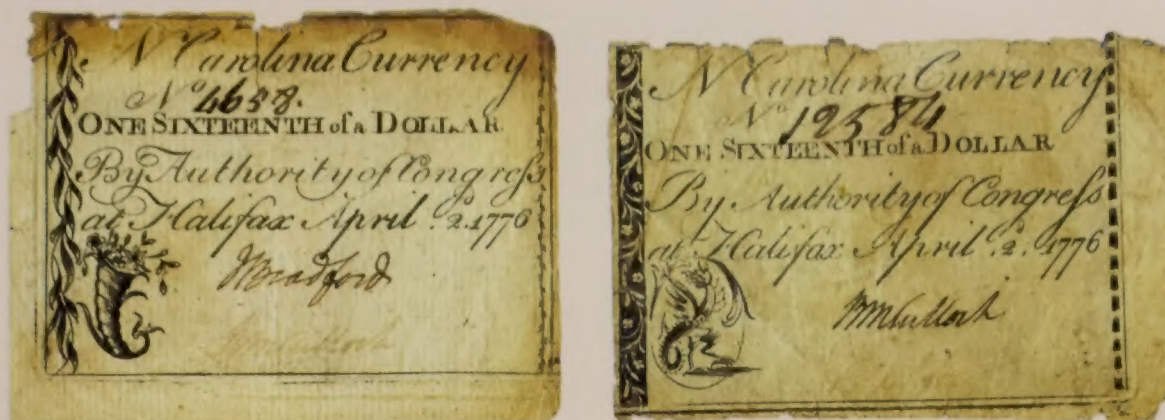 N Carolina Currency
No 4658.
ONE SIXTEENTH of a DOLLAR
By Authority of Congreſs
at Halifax April 2. 1776
JBradford
N Carolina Currency
No 19584
ONE SIXTEENTH of a DOLLAR
By Authority of Congreſs
at Halifax April 2. 1776